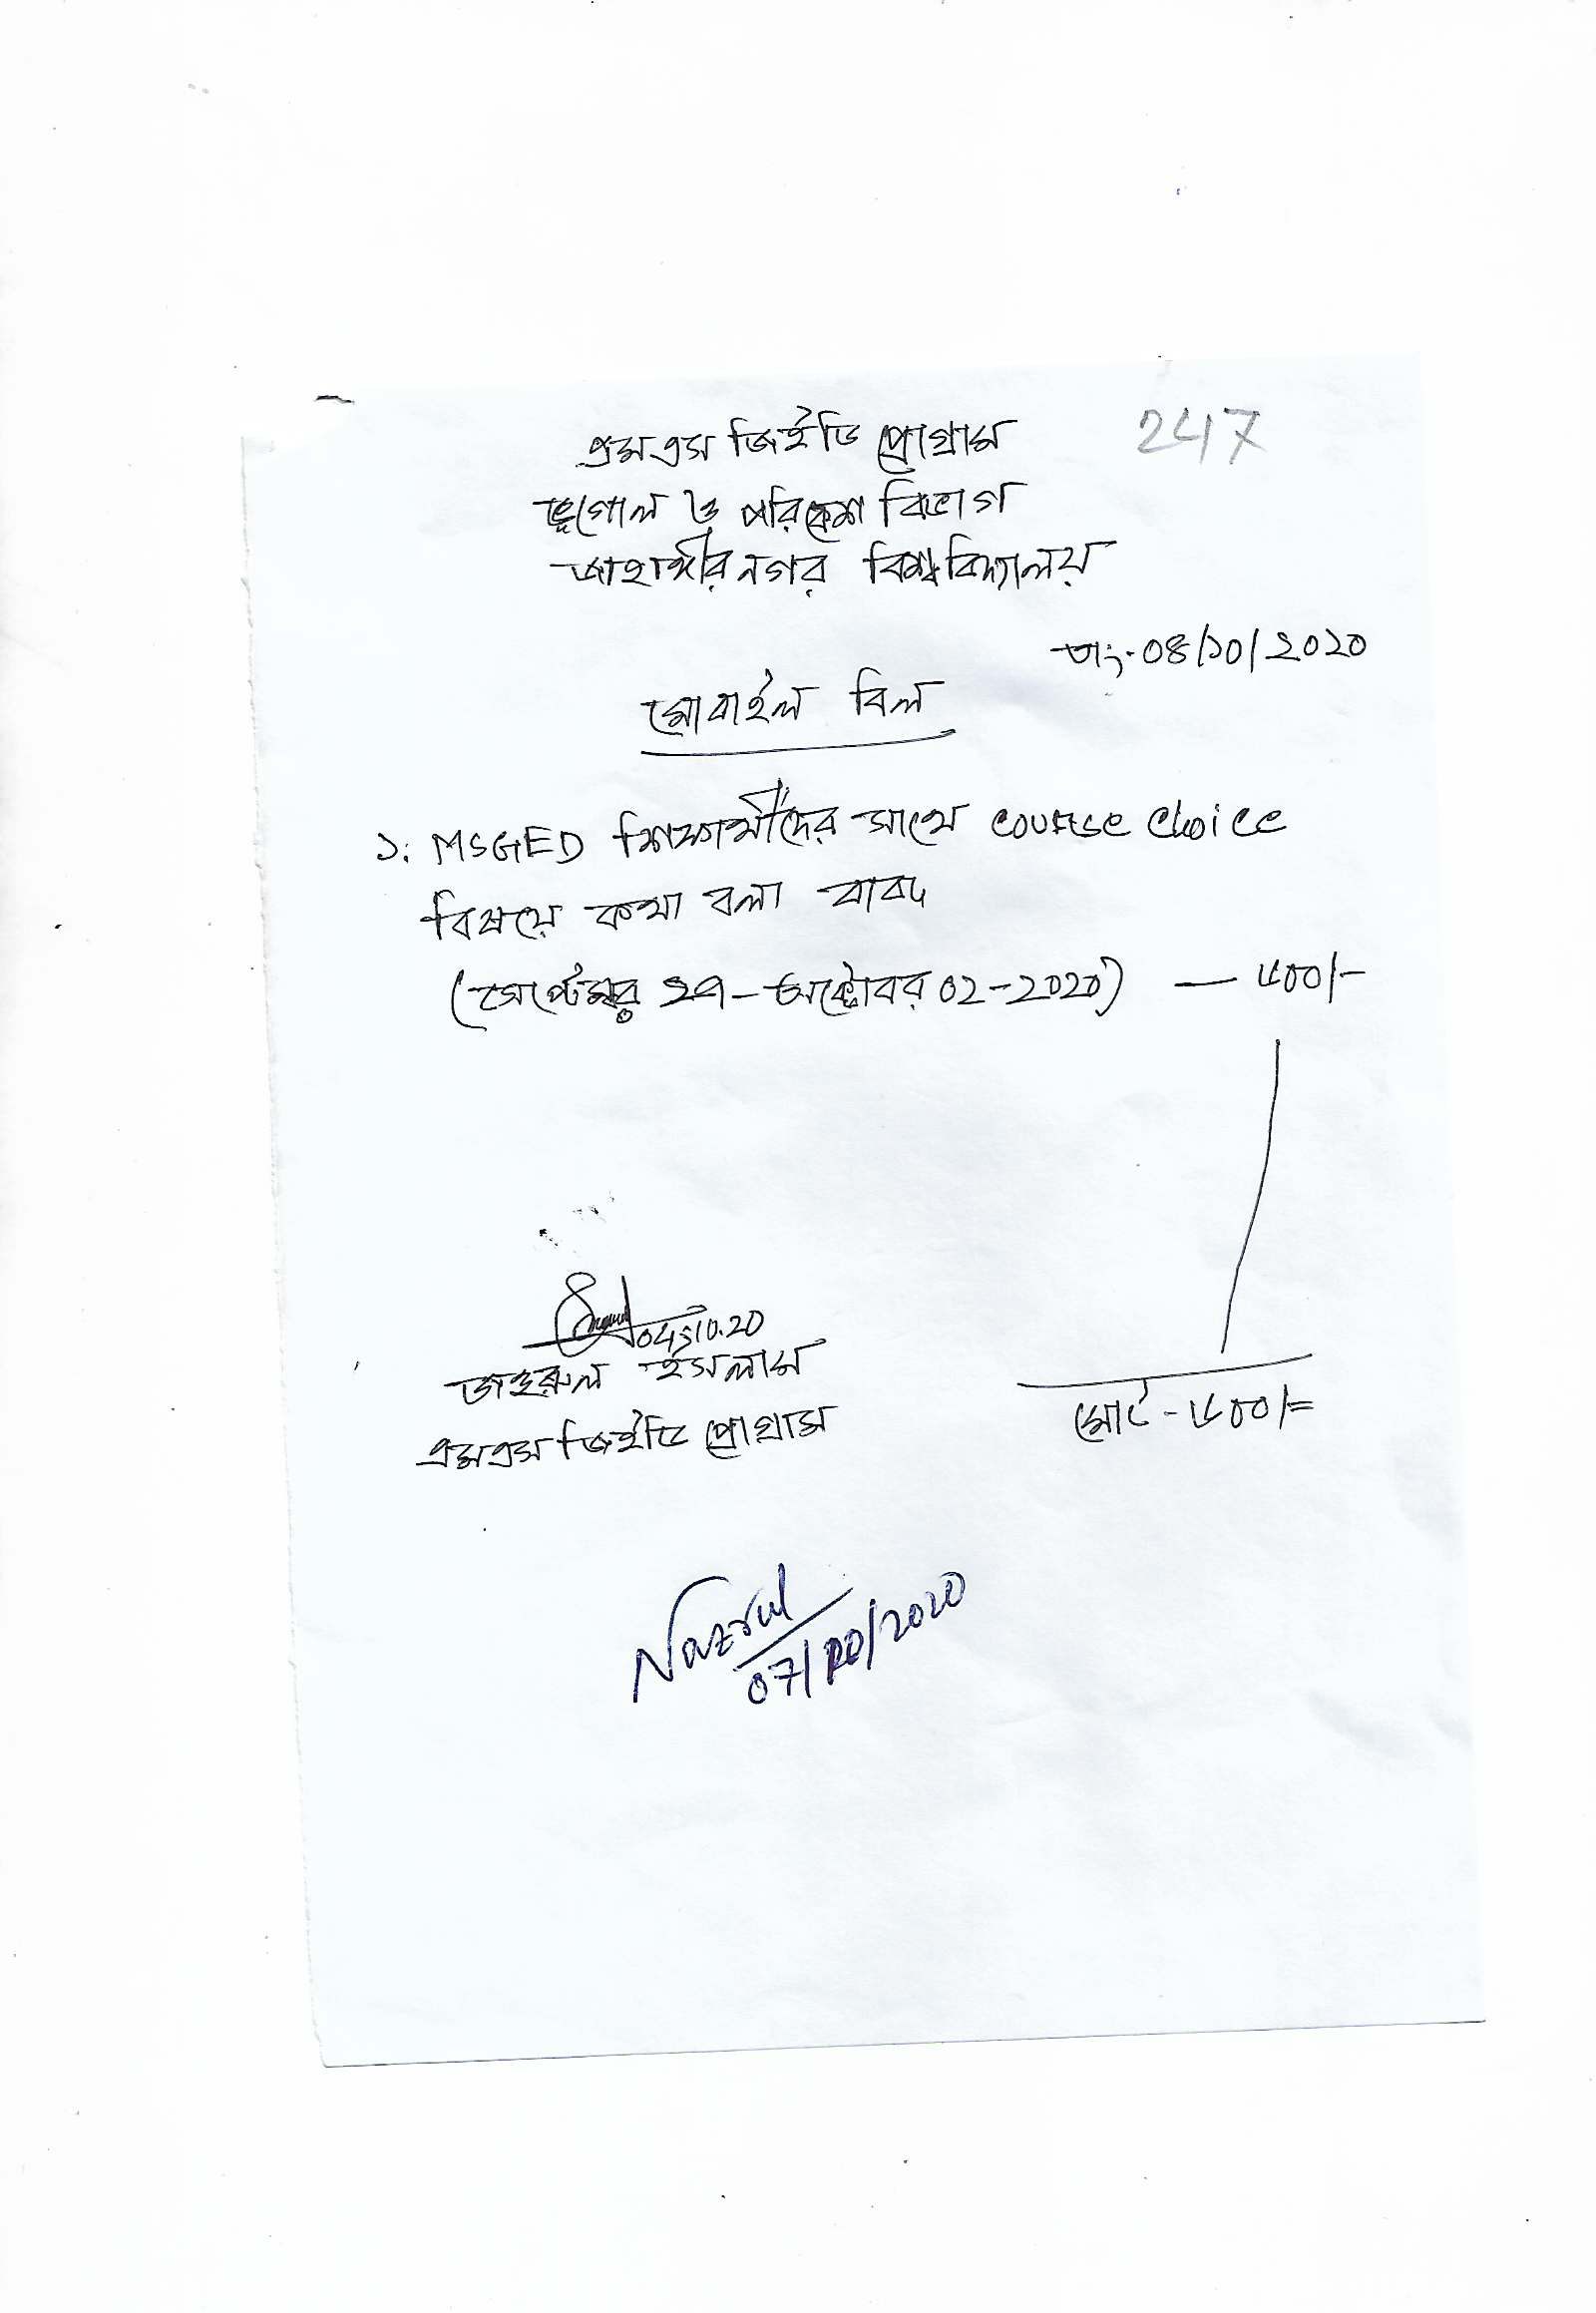 247
এমএস জিইডি প্রোগ্রাম
ভূগোল ও পরিবেশ বিভাগ
জাহাঙ্গীরনগর বিশ্ববিদ্যালয়
তাং-০৪/১০/২০২০
মোবাইল বিল
১. MSGED শিক্ষার্থীদের সাথে course choice
বিষয়ে কথা বলা বাবদ
(সেপ্টেম্বর ২৭-অক্টোবর ০২-২০২০) — ৮০০/-
04.10.20
জহুরুল ইসলাম
এমএস জিইডি প্রোগ্রাম
মোট - ৮০০/=
Nazrul
07/10/2020